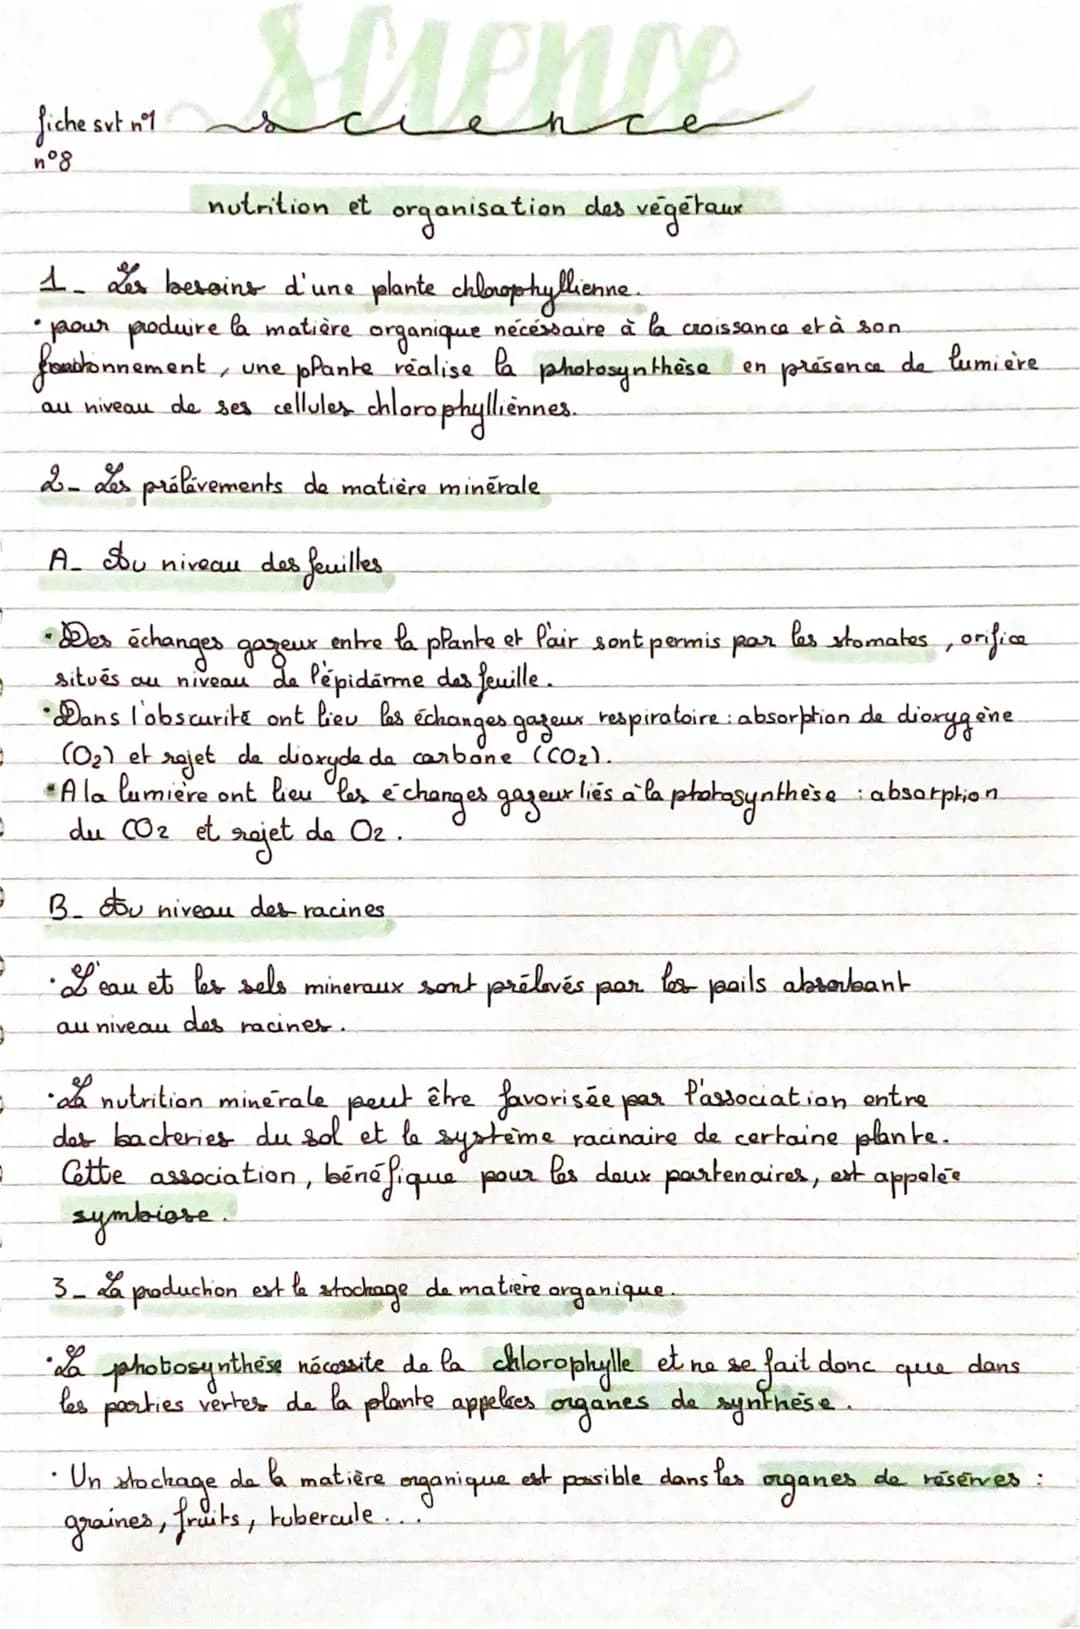 science
fiche svt n°1
science
n°8
nutrition et organisation des végétaux
1_ Les besoins d'une plante chlorophyllienne.
• pour produire la matière organique nécéssaire à la croissance et à son
fonctionnement, une plante réalise la photosynthèse en présence de lumière
au niveau de ses cellules chlorophylliènnes.
2_ Les prélèvements de matière minérale
A_ Au niveau des feuilles
• Des échanges gazeux entre la plante et l'air sont permis par les stomates, orifice
situés au niveau de l'épidèrme des feuille.
• Dans l'obscurité ont lieu les échanges gazeux respiratoire : absorption de dioxygène
(O2) et rejet de dioxyde de carbone (CO2).
• A la lumière ont lieu les échanges gazeux liés à la photosynthèse : absorption
du CO2 et rejet de O2.
B_ Au niveau des racines
• L'eau et les sels mineraux sont prélevés par les poils absorbant
au niveau des racines.
• La nutrition minérale peut être favorisée par l'association entre
des bacteries du sol et le système racinaire de certaine plante.
Cette association, bénéfique pour les deux partenaires, est appelée
symbiose.
3_ La production est le stockage de matière organique.
• La photosynthèse nécessite de la chlorophylle et ne se fait donc que dans
les parties vertes de la plante appelées organes de synthèse.
• Un stockage de la matière organique est possible dans les organes de réserves :
graines, fruits, tubercule...